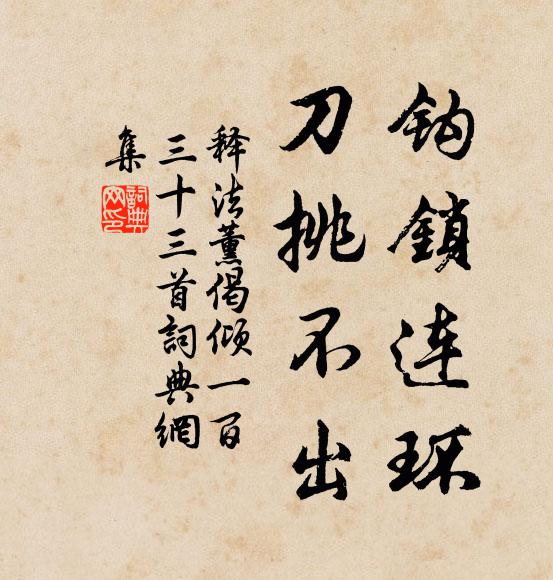 钩鎖连环
刀挑不出
释法薰偈倾一百
三十三首詞典網
集
詞典
网印